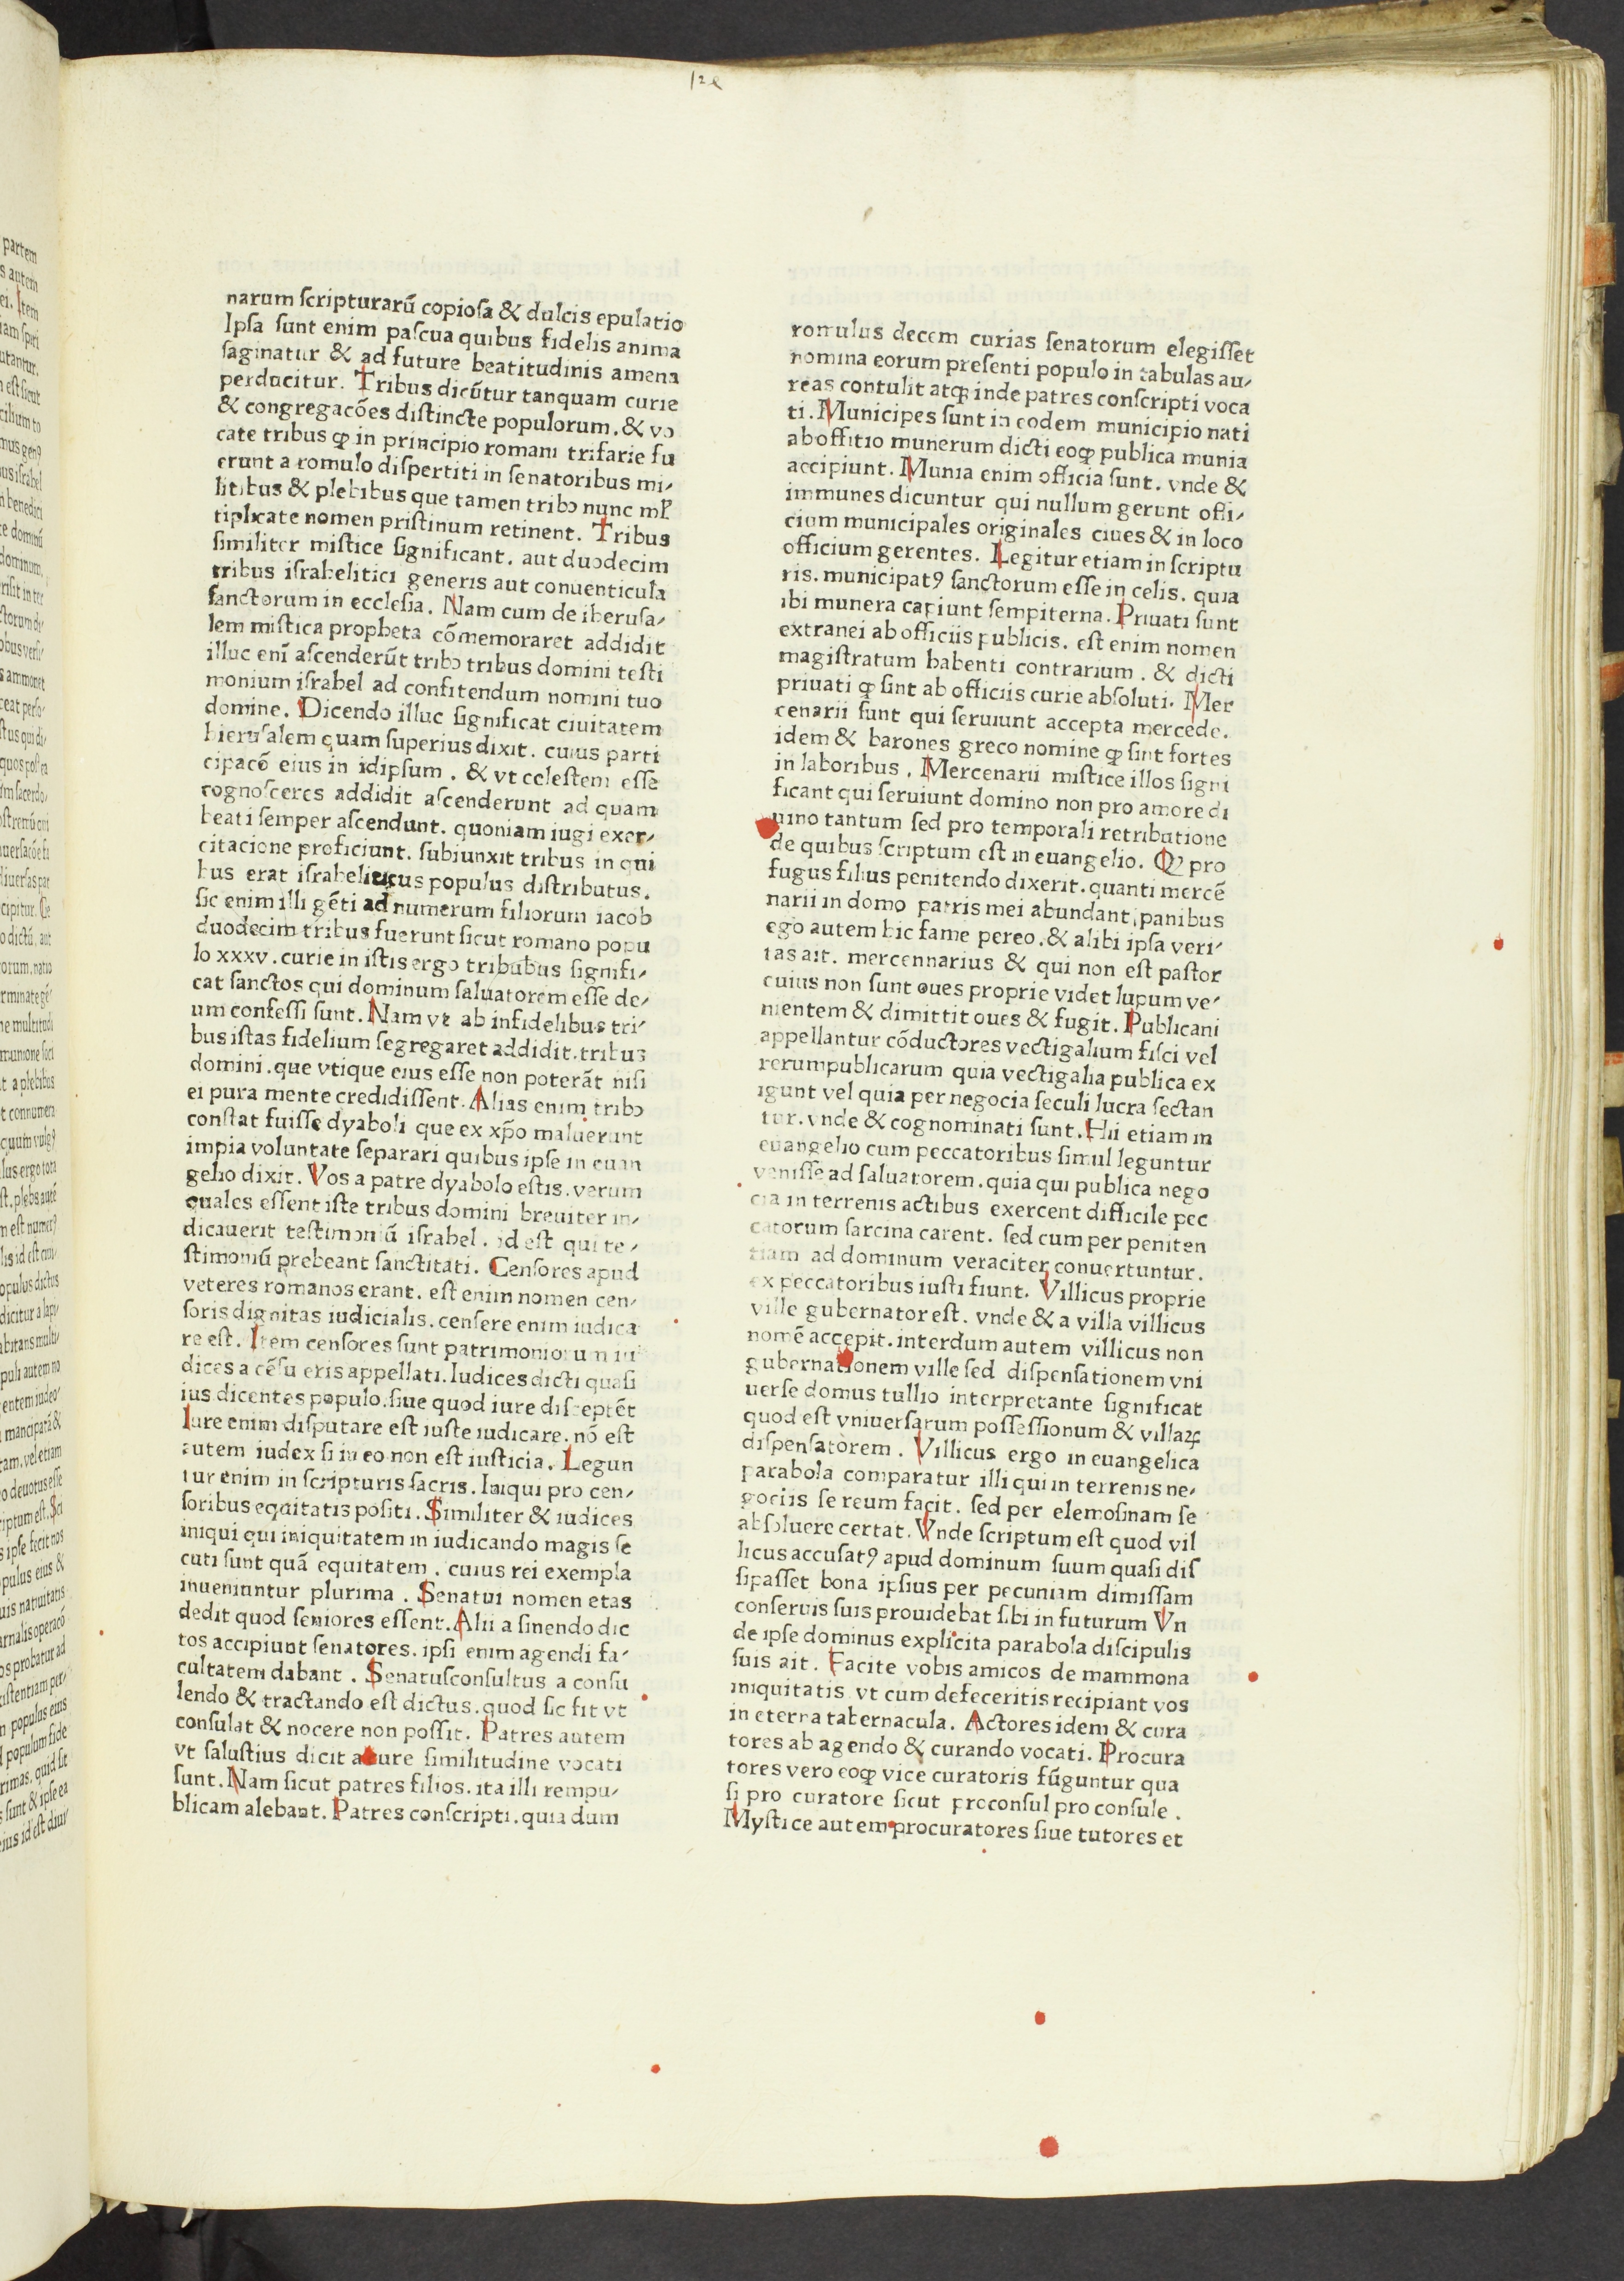 narum ſcripturarū copioſa & dulcis epulatio
Ipſa ſunt enim paſcua quibus fidelis anima
ſaginatur & ad future beatitudinis amena
perducitur. Tribus dicūtur tanquam curie
& congregacōes diſtincte populorum. & vo
cate tribus ꝙ in principio romani trifarie fu
erunt a romulo diſpertiti in ſenatoribus mi⸗
litibus & plebibus que tamen tribꝰ nunc ml̄
tiplicate nomen priſtinum retinent. Tribus
ſimiliter miſtice ſignificant. aut duodecim
tribus iſrahelitici generis aut conuenticula
ſanctorum in eccleſia. Nam cum de iheruſa⸗
lem miſtica propheta cōmemoraret addidit
illuc enī aſcenderūt tribꝰ tribus domini teſti
monium iſrahel ad confitendum nomini tuo
domine. Dicendo illuc ſignificat ciuitatem
hieruſalem quam ſuperius dixit. cuius parti
cipacō eius in idipſum. & vt celeſtem eſſe
cognoſceres addidit aſcenderunt ad quam
beati ſemper aſcendunt. quoniam iugi exer⸗
citacione proficiunt. ſubiunxit tribus in qui
bus erat iſraheliticus populus diſtributus.
ſic enim illi gēti ad numerum filiorum iacob
duodecim tribus fuerunt ſicut romano popu
lo xxxv. curie in iſtis ergo tribubus ſignifi⸗
cat ſanctos qui dominum ſaluatorem eſſe de⸗
um confeſſi ſunt. Nam vt ab infidelibus tri⸗
bus iſtas fidelium ſegregaret addidit. tribus
domini. que vtique eius eſſe non poterāt niſi
ei pura mente credidiſſent. Alias enim tribꝰ
conſtat fuiſſe dyaboli que ex xp̄o maluerunt
impia voluntate ſeparari quibus ipſe in euan
gelio dixit. Vos a patre dyabolo eſtis. verum
quales eſſent iſte tribus domini breuiter in⸗
dicauerit teſtimoniū iſrahel. id eſt qui te⸗
ſtimoniū prebeant ſanctitati. Cenſores apud
veteres romanos erant. eſt enim nomen cen⸗
ſoris dignitas iudicialis. cenſere enim iudica
re eſt. Item cenſores ſunt patrimoniorum iu
dices a cēſu eris appellati. Iudices dicti quaſi
ius dicentes populo. ſiue quod iure diſceptēt
Iure enim diſputare eſt iuſte iudicare. nō eſt
autem iudex ſi in eo non eſt iuſticia. Legun
tur enim in ſcripturis ſacris. Iniqui pro cen⸗
ſoribus equitatis poſiti. Similiter & iudices
iniqui qui iniquitatem in iudicando magis ſe
cuti ſunt quā equitatem. cuius rei exempla
inueniuntur plurima. Senatui nomen etas
dedit quod ſeniores eſſent. Alii a ſinendo dic
tos accipiunt ſenatores. ipſi enim agendi fa⸗
cultatem dabant. Senatuſconſultus a conſu
lendo & tractando eſt dictus. quod ſic fit vt
conſulat & nocere non poſſit. Patres autem
vt ſaluſtius dicit a cure ſimilitudine vocati
ſunt. Nam ſicut patres filios. ita illi rempu⸗
blicam alebant. Patres conſcripti. quia dum
romulus decem curias ſenatorum elegiſſet
nomina eorum preſenti populo in tabulas au⸗
reas contulit atqꝫ inde patres conſcripti voca
ti. Municipes ſunt in eodem municipio nati
ab offitio munerum dicti eoꝙ publica munia
accipiunt. Munia enim officia ſunt. vnde &
immunes dicuntur qui nullum gerunt offi⸗
cium municipales originales ciues & in loco
officium gerentes. Legitur etiam in ſcriptu
ris. municipatꝰ ſanctorum eſſe in celis. quia
ibi munera capiunt ſempiterna. Priuati ſunt
extranei ab officiis publicis. eſt enim nomen
magiſtratum habenti contrarium. & dicti
priuati ꝙ ſint ab officiis curie abſoluti. Mer
cenarii ſunt qui ſeruiunt accepta mercede.
idem & barones greco nomine ꝙ ſint fortes
in laboribus. Mercenarii miſtice illos ſigni
ficant qui ſeruiunt domino non pro amore di
uino tantum ſed pro temporali retributione
de quibus ſcriptum eſt in euangelio. Ꝙ pro
fugus filius penitendo dixerit. quanti mercē
narii in domo patris mei abundant panibus
ego autem hic fame pereo. & alibi ipſa veri⸗
tas ait. mercennarius & qui non eſt paſtor
cuius non ſunt oues proprie videt lupum ve⸗
nientem & dimittit oues & fugit. Publicani
appellantur cōductores vectigalium fiſci vel
rerumpublicarum quia vectigalia publica ex
igunt vel quia per negocia ſeculi lucra ſectan
tur. vnde & cognominati ſunt. Hii etiam in
euangelio cum peccatoribus ſimul leguntur
veniſſe ad ſaluatorem. quia qui publica nego
cia in terrenis actibus exercent difficile pec
catorum ſarcina carent. ſed cum per peniten
tiam ad dominum veraciter conuertuntur.
ex peccatoribus iuſti fiunt. Villicus proprie
ville gubernator eſt. vnde & a villa villicus
nomē accepit. interdum autem villicus non
gubernationem ville ſed diſpenſationem vni
uerſe domus tullio interpretante ſignificat
quod eſt vniuerſarum poſſeſſionum & villaꝝ
diſpenſatorem. Villicus ergo in euangelica
parabola comparatur illi qui in terrenis ne⸗
gociis ſe reum facit. ſed per elemoſinam ſe
abſoluere certat. Vnde ſcriptum eſt quod vil
licus accuſatꝰ apud dominum ſuum quaſi diſ
ſipaſſet bona ipſius per pecuniam dimiſſam
conſeruis ſuis prouidebat ſibi in futurum Vn
de ipſe dominus explicita parabola diſcipulis
ſuis ait. Facite vobis amicos de mammona
iniquitatis vt cum defeceritis recipiant vos
in eterna tabernacula. Actores idem & cura
tores ab agendo & curando vocati. Procura
tores vero eoꝙ vice curatoris fūguntur qua
ſi pro curatore ſicut proconſul pro conſule.
Myſtice autem procuratores ſiue tutores et